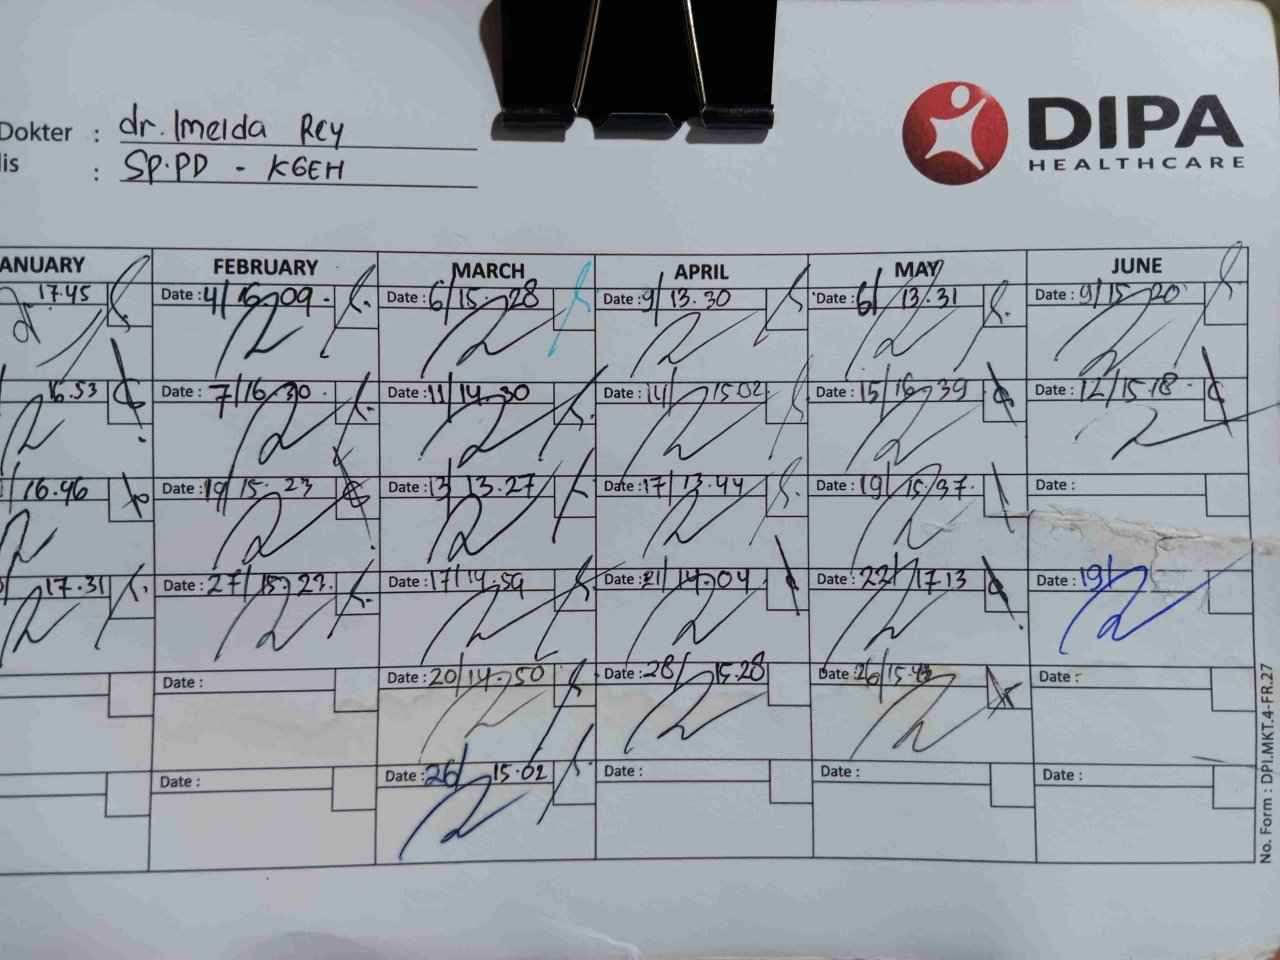 Dokter : dr. Imelda Rey
lis : SP.PD - KGEH
DIPA
HEALTHCARE
ANUARY FEBRUARY MARCH APRIL MAY JUNE
17.45 Date : 4/ 16.09 Date : 6/ 15.28 Date : 9/ 13.30 Date : 6/ 13.31 Date : 9/ 15.20
16.53 Date : 7/ 16.30 Date : 11/ 14.30 Date : 14/ 15.02 Date : 15/ 16.39 Date : 12/ 15.18
16.46 Date : 19/ 15.23 Date : 13/ 13.27 Date : 17/ 13.44 Date : 19/ 15.37 Date :
17.31 Date : 27/ 15.22 Date : 17/ 14.59 Date : 21/ 14.04 Date : 22/ 17.13 Date : 19/
Date : Date : 20/ 14.50 Date : 28/ 15.28 Date : 26/ Date :
Date : Date : 26/ 15.02 Date : Date : Date :
No. Form : DPI.MKT.4-FR.27